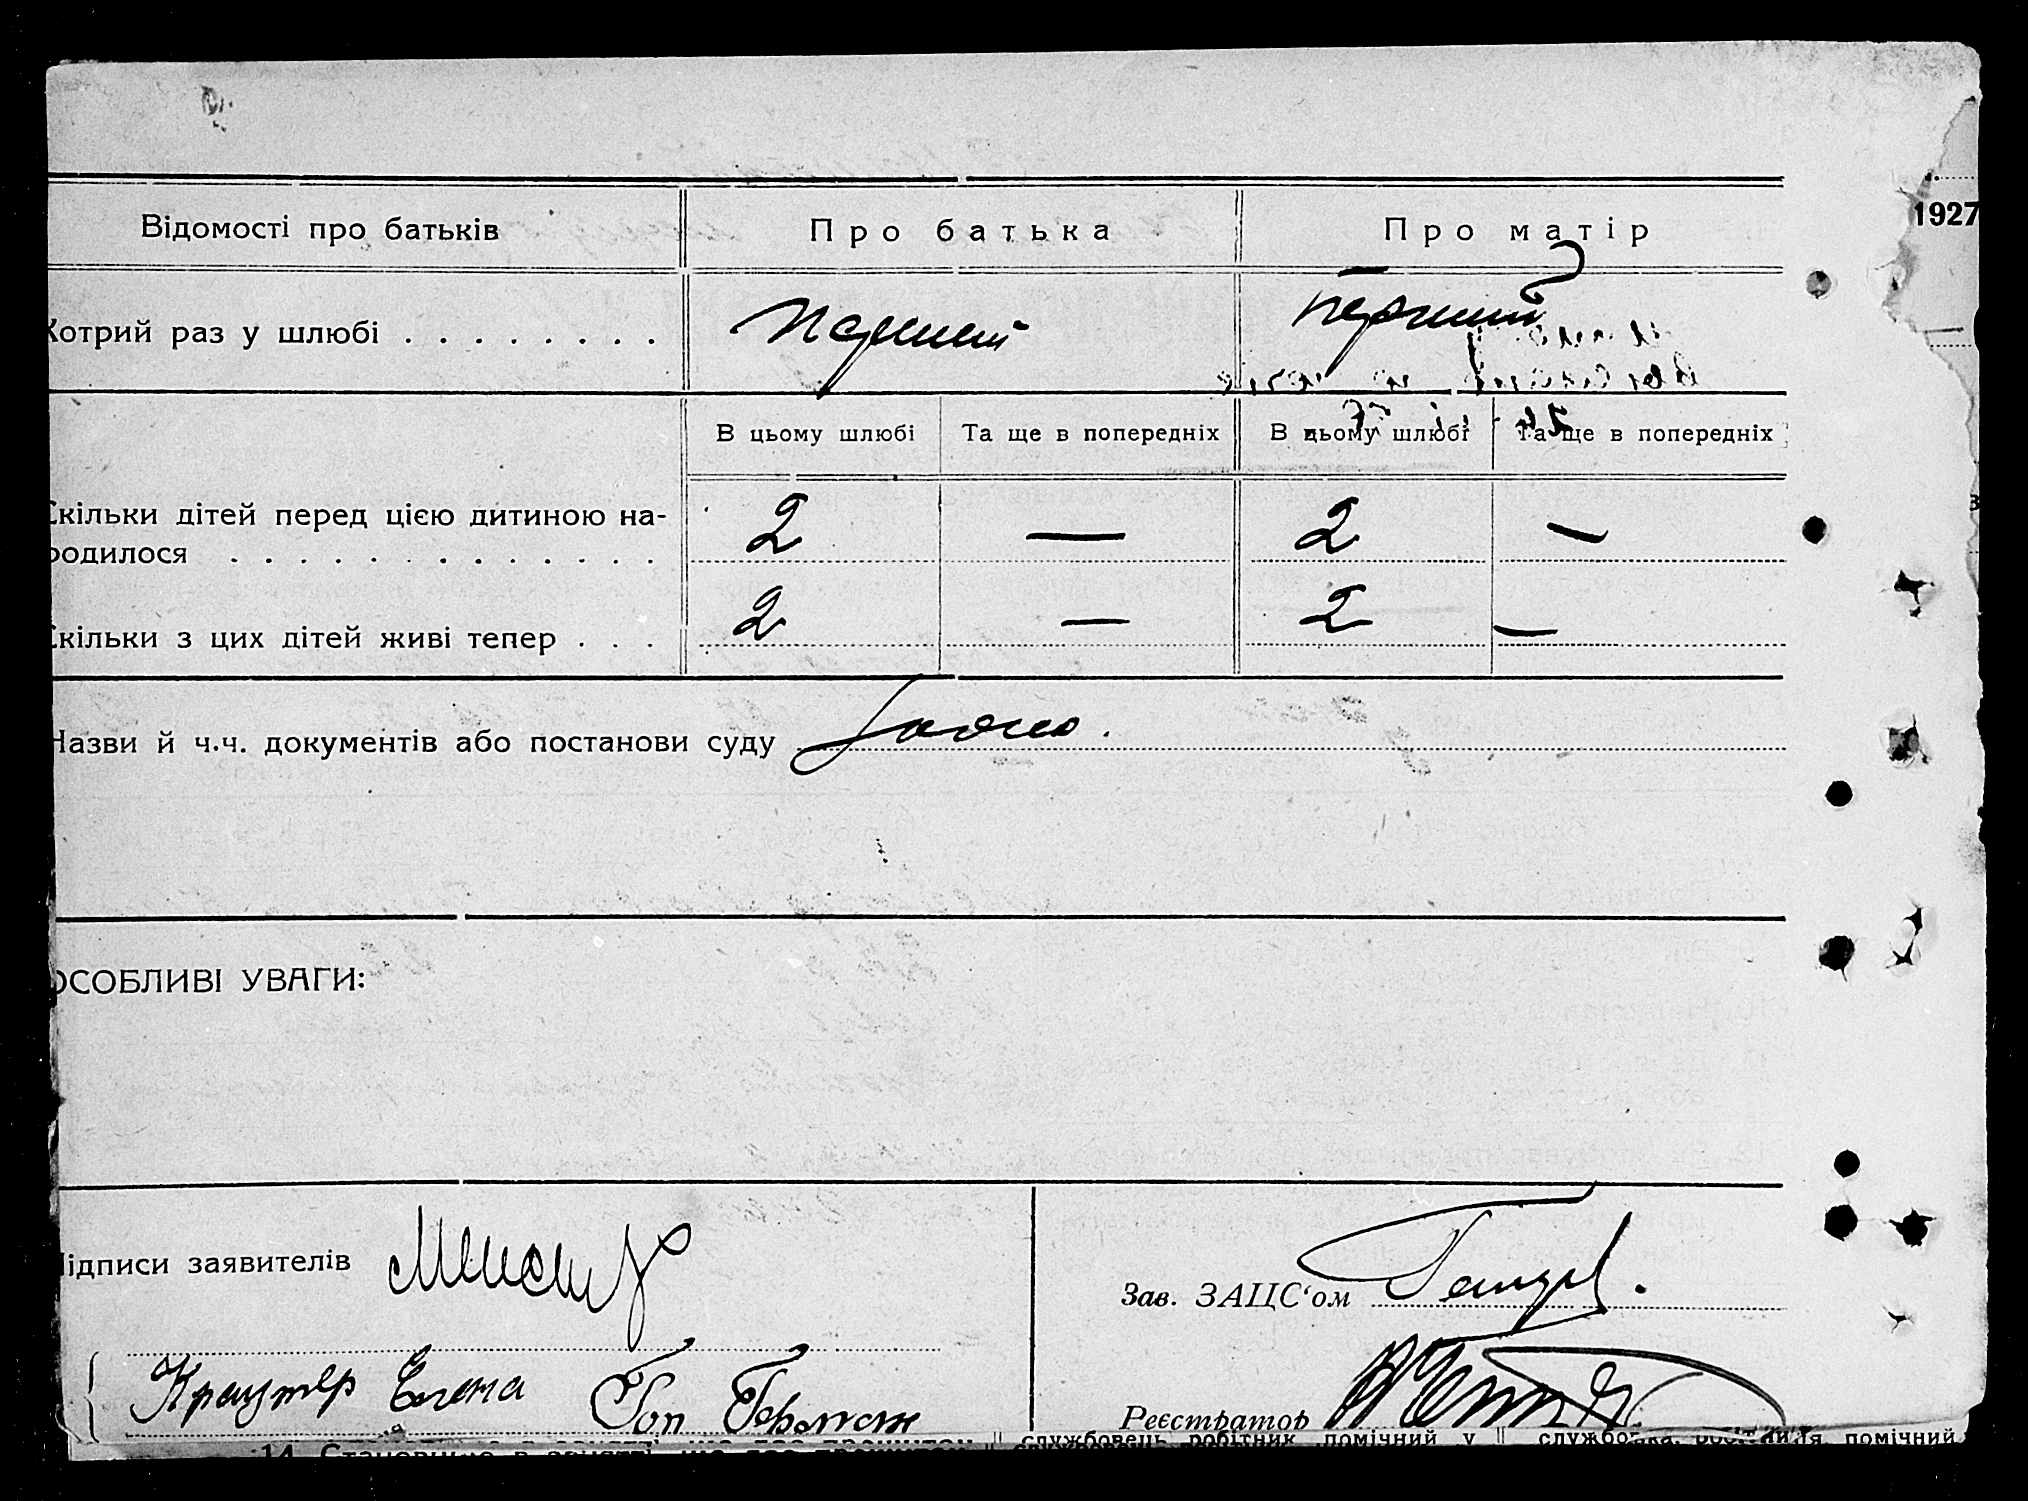 Відомості про батьків Про батька Про матір
1927
Котрий раз у шлюбі . . . . . . . . Перший Перший
В цьому шлюбі Та ще в попередніх В цьому шлюбі Та ще в попередніх
Скільки дітей перед цією дитиною на- 2 — 2 —
родилося . . . . . . . . . . . . .
Скільки з цих дітей живі тепер . . . 2 — 2 —
Назви й ч.ч. документів або постанови суду
ОСОБЛИВІ УВАГИ:
Підписи заявителів
Зав. ЗАЦС‘ом
Краутер Елена Гоп Герман
Реєстратор
14. Становище в занятті, що дає прожиток службовець, робітник, помічний у службовка, робітниця помічний